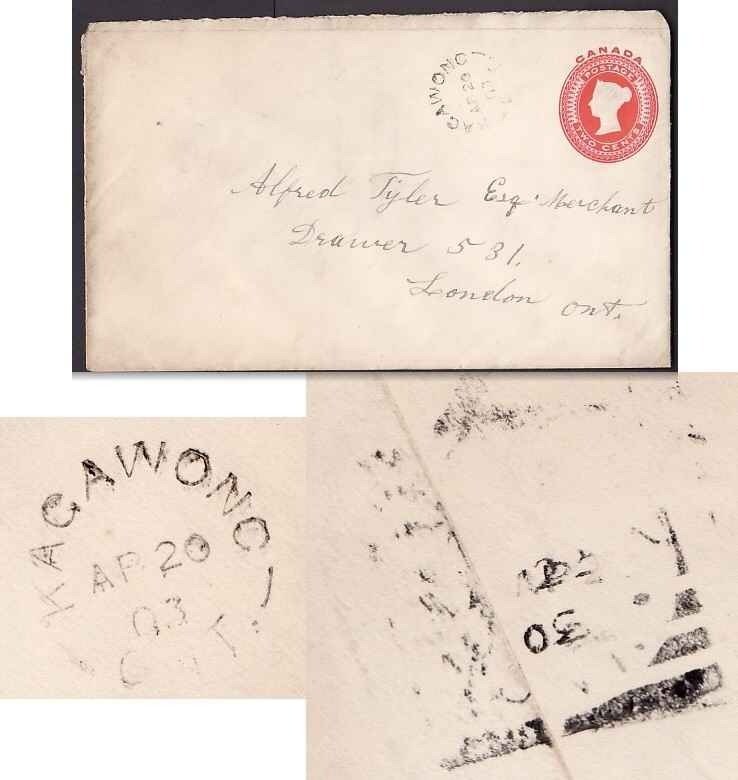 KAGAWONG
AP 20
03
ONT.
CANADA
POSTAGE
TWO CENTS
Alfred Tyler Esq. Merchant
Drawer 531.
London Ont.
KAGAWONG
AP 20
03
ONT.